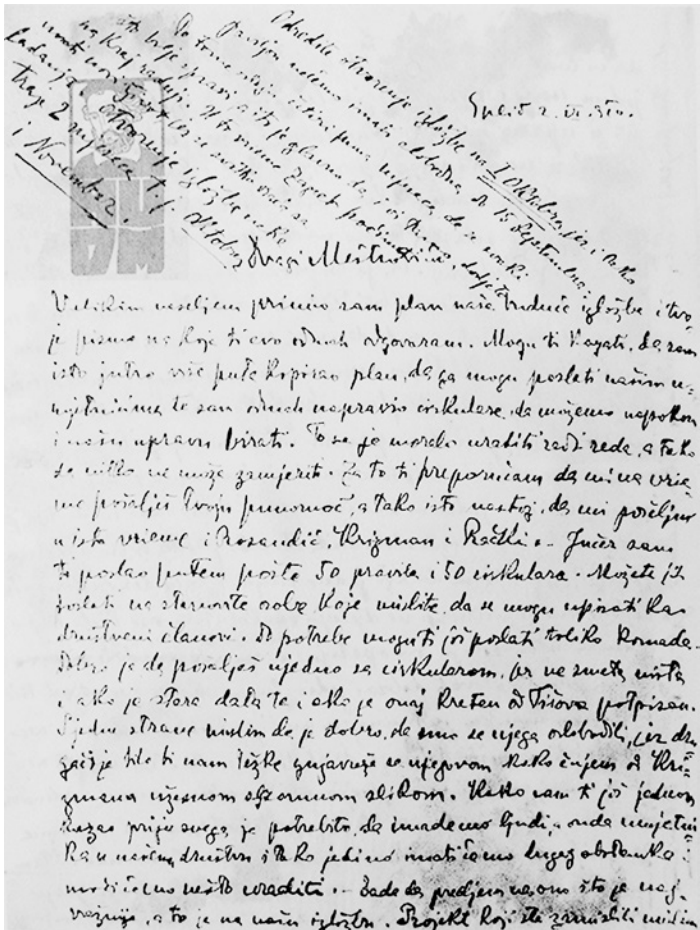 Odredite otvorenje izložbe na I Oktobra, jer i tako
nećemo imati slobodna do 15 Septembra.
Po tome
na kraj
otvorenje izložbe neka
traje 2 mjeseca t. j. Oktobar
i Novembar.
Split 2. VI.
Dragi Meštroviću
Velikim veseljem primio sam plan naše buduće izložbe i tvo-
je pismo na koje ti evo odmah odgovaram. Mogu ti kazati, da sam
isto jutro više puta kopisao plan, da ga mogu poslati našim u-
mjetnicima te sam odmah napravio cirkulare, da možemo napokon
i našu upravu birati. To se je moralo uraditi radi reda, a tako
se nitko ne može zamjeriti. Za to ti preporučam da mi na vrie-
me pošalješ tvoju punomoć, a tako isto nastoj, da mi pošalju
u isto vrieme i Rosandić, Krizman i Rački. Jučer sam
ti poslao putem pošte 50 pravila i 50 cirkulara. Možete jih
poslati na stanovite osobe koje mislite, da se mogu upisati kao
društveni članovi. Od potrebe mogu ti još poslati toliko komada.
Dobro je da pošalješ ujedno sa cirkularom, jer ne smeta ništa
i ako je stara data te i ako je onaj kreten od Tišova potpisan.
S jedne strane mislim da je dobro, da smo se njega oslobodili, jer dru-
gačije bile bi nam težke gnjavaže se njegovom kako čujem od Kri-
zmana užasnom ogromnom slikom. Kako sam ti još jednom
kazao prije svega je potrebito, da imademo ljudi, a onda umjetni-
ka u našem društvu i tako jedino imati ćemo dugog obstanka i
moći ćemo nešto uraditi. Sada da predjem na ono što je naj-
važnije, a to je na našu izložbu. Projekt koji ste zamislili mislim